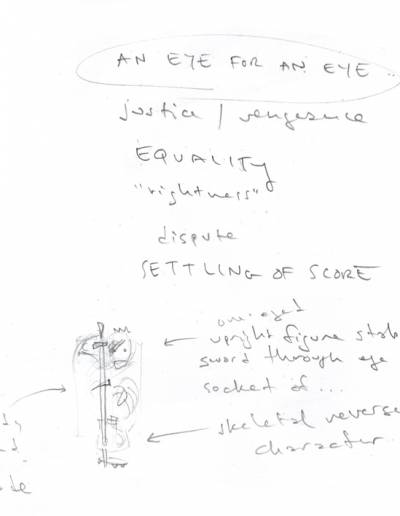 AN EYE FOR AN EYE..
justice / vengeance
EQUALITY
"rightness"
dispute
SETTLING OF SCORE
one eyed
upright figure stab
sword through eye
socket of ...
skeletal reverse
character